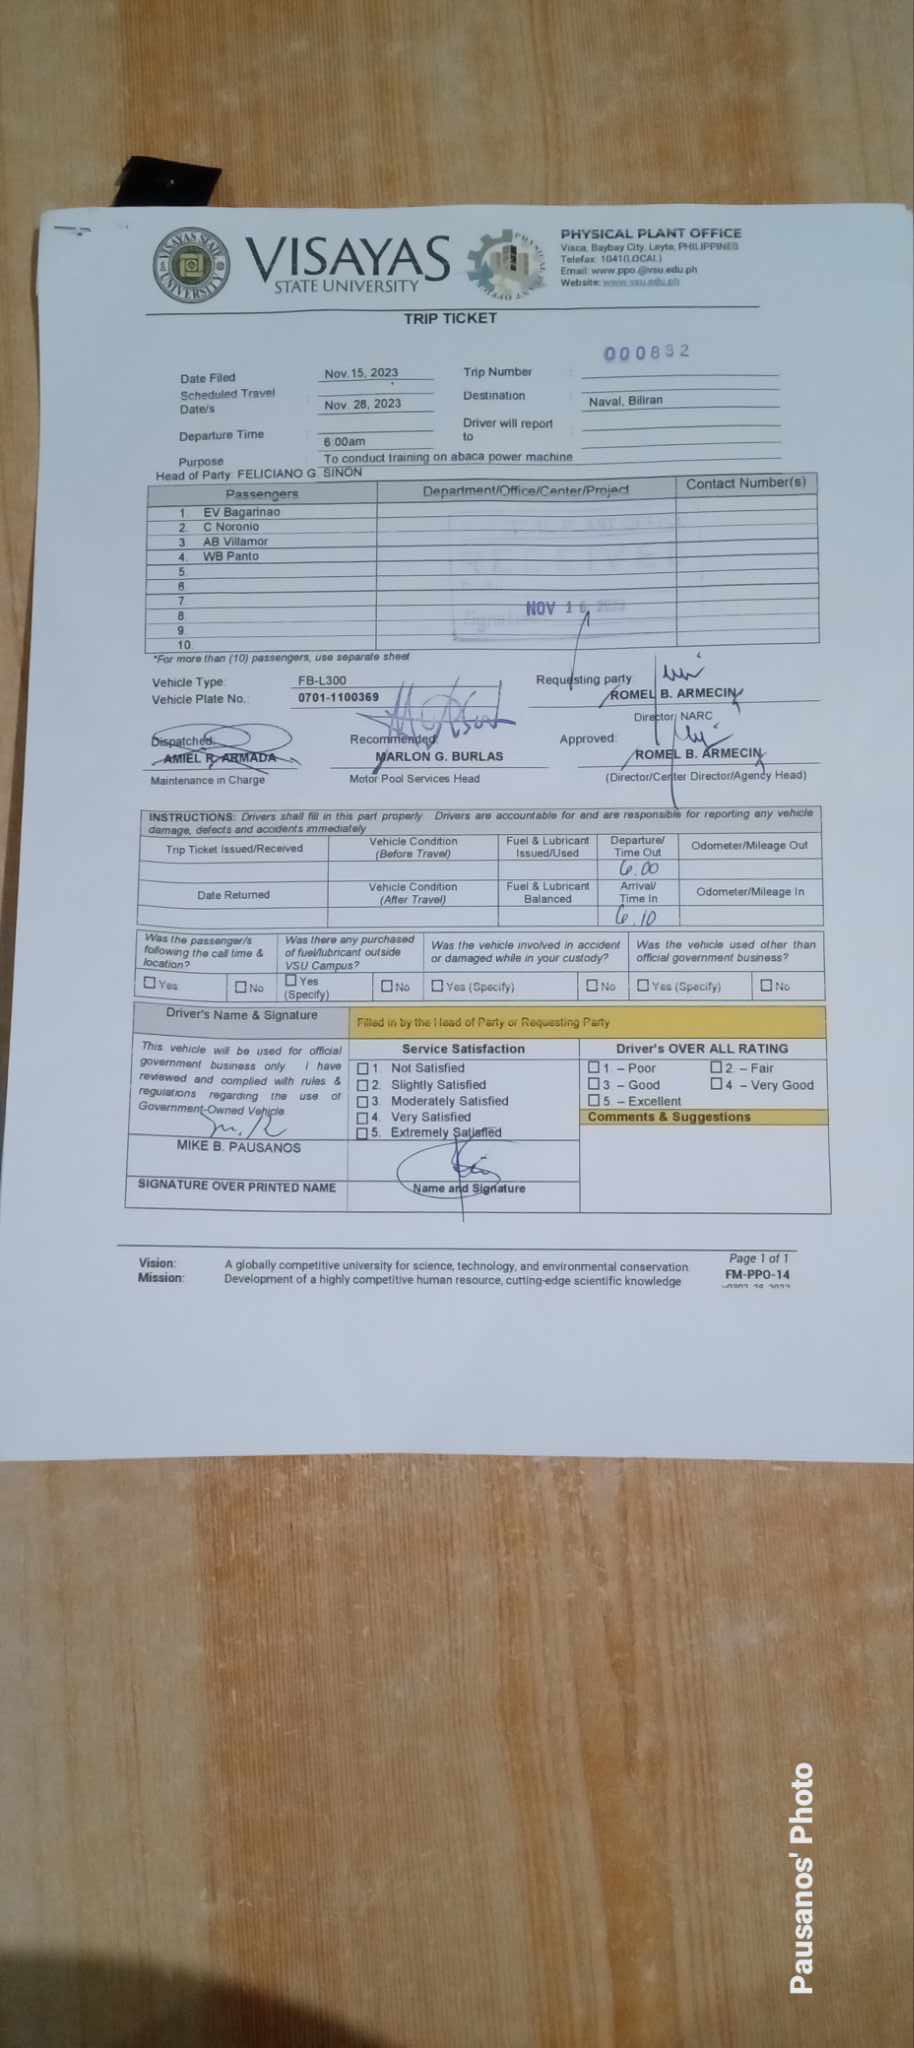 VISAYAS STATE UNIVERSITY
VISAYAS
STATE UNIVERSITY
PHYSICAL PLANT OFFICE
Visca, Baybay City, Leyte, PHILIPPINES
Telefax: 1041(LOCAL)
Email: www.ppo.@vsu.edu.ph
Website: www.vsu.edu.ph
TRIP TICKET
000832
Date Filed : Nov.15, 2023 Trip Number :
Scheduled Travel Date/s : Nov. 28, 2023 Destination : Naval, Biliran
Departure Time : 6:00am Driver will report to :
Purpose : To conduct training on abaca power machine
Head of Party: FELICIANO G. SINON
Passengers Department/Office/Center/Project Contact Number(s)
1. EV Bagarinao
2. C Noronio
3. AB Villamor
4. WB Panto
5.
6.
7.
8.
9.
10.
NOV 16 2023
*For more than (10) passengers, use separate sheet
Vehicle Type: FB-L300 Requesting party:
Vehicle Plate No.: 0701-1100369 ROMEL B. ARMECIN
Director, NARC
Dispatched: Recommended: Approved:
AMIEL R. ARMADA MARLON G. BURLAS ROMEL B. ARMECIN
Maintenance in Charge Motor Pool Services Head (Director/Center Director/Agency Head)
INSTRUCTIONS: Drivers shall fill in this part properly. Drivers are accountable for and are responsible for reporting any vehicle
damage, defects and accidents immediately
Trip Ticket Issued/Received Vehicle Condition (Before Travel) Fuel & Lubricant Issued/Used Departure/ Time Out Odometer/Mileage Out
6.00
Date Returned Vehicle Condition (After Travel) Fuel & Lubricant Balanced Arrival/ Time In Odometer/Mileage In
6.10
Was the passenger/s following the call time & location? Was there any purchased of fuel/lubricant outside VSU Campus? Was the vehicle involved in accident or damaged while in your custody? Was the vehicle used other than official government business?
Yes No Yes (Specify) No Yes (Specify) No Yes (Specify) No
Driver's Name & Signature Filled in by the Head of Party or Requesting Party
This vehicle will be used for official
government business only. I have
reviewed and complied with rules &
regulations regarding the use of
Government-Owned Vehicle
MIKE B. PAUSANOS
SIGNATURE OVER PRINTED NAME
Service Satisfaction
1. Not Satisfied
2. Slightly Satisfied
3. Moderately Satisfied
4. Very Satisfied
5. Extremely Satisfied
Name and Signature
Driver's OVER ALL RATING
1. – Poor 2 – Fair
3 – Good 4 – Very Good
5. – Excellent
Comments & Suggestions
Vision: A globally competitive university for science, technology, and environmental conservation
Mission: Development of a highly competitive human resource, cutting-edge scientific knowledge
Page 1 of 1
FM-PPO-14
Pausanos' Photo